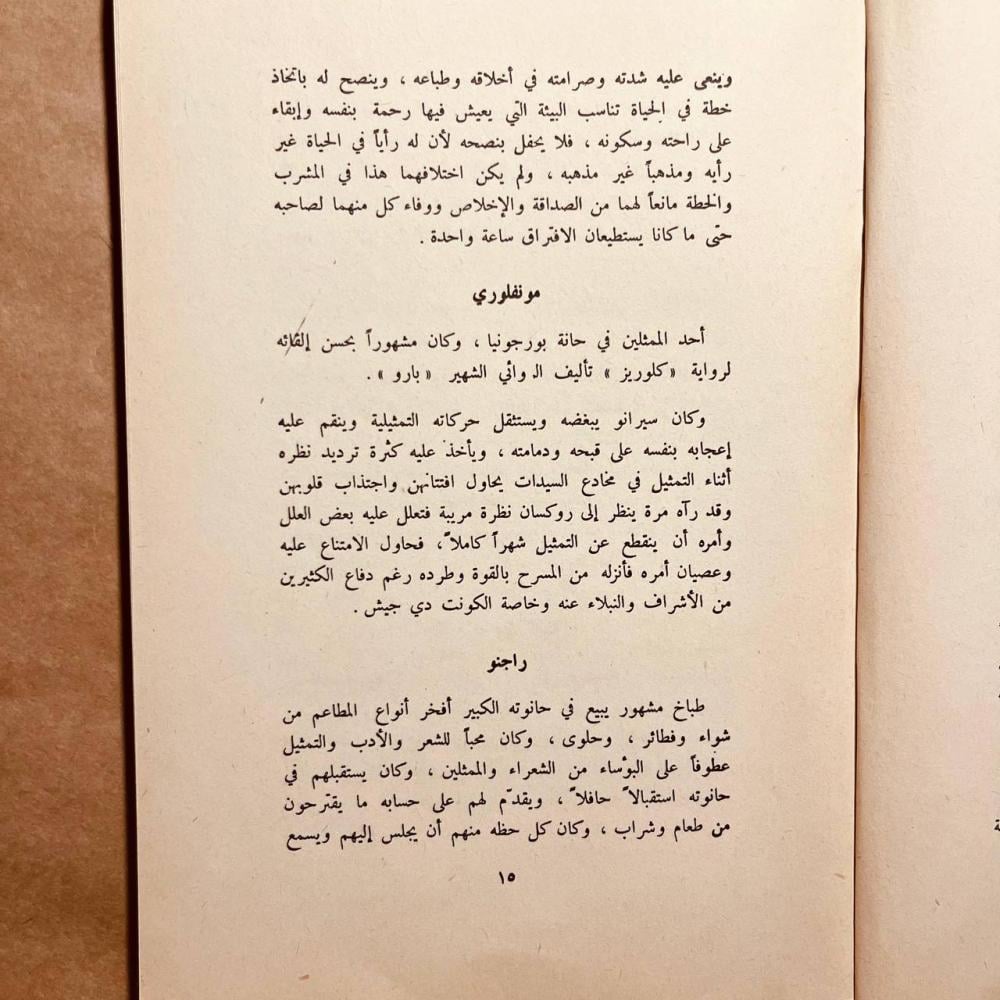 وينعى عليه شدته وصرامته في أخلاقه وطباعه ، وينصح له باتخاذ
خطة في الحياة تناسب البيئة التي يعيش فيها رحمة بنفسه وإبقاء
على راحته وسكونه ، فلا يحفل بنصحه لأن له رأياً في الحياة غير
رأيه ومذهباً غير مذهبه ، ولم يكن اختلافهما هذا في المشرب
والخطة مانعاً لهما من الصداقة والإخلاص ووفاء كل منهما لصاحبه
حتى ما كانا يستطيعان الافتراق ساعة واحدة .
مونفلوري
أحد الممثلين في حانة بورجونيا ، وكان مشهوراً بحسن إلقائه
لرواية « كلوريز » تأليف الروائي الشهير « بارو » .
وكان سيرانو يبغضه ويستثقل حركاته التمثيلية وينقم عليه
إعجابه بنفسه على قبحه ودمامته ، ويأخذ عليه كثرة ترديد نظره
أثناء التمثيل في مخادع السيدات يحاول افتتانهن واجتذاب قلوبهن
وقد رآه مرة ينظر إلى روكسان نظرة مريبة فتعلل عليه بعض العلل
وأمره أن ينقطع عن التمثيل شهراً كاملاً ، فحاول الامتناع عليه
وعصيان أمره فأنزله من المسرح بالقوة وطرده رغم دفاع الكثيرين
من الأشراف والنبلاء عنه وخاصة الكونت دي جيش .
راجنو
طباخ مشهور يبيع في حانوته الكبير أفخر أنواع المطاعم من
شواء وفطائر ، وحلوى ، وكان محباً للشعر والأدب والتمثيل
عطوفاً على البؤساء من الشعراء والممثلين ، وكان يستقبلهم في
حانوته استقبالاً حافلاً ، ويقدّم لهم على حسابه ما يقترحون
من طعام وشراب ، وكان كل حظه منهم أن يجلس إليهم ويسمع
١٥